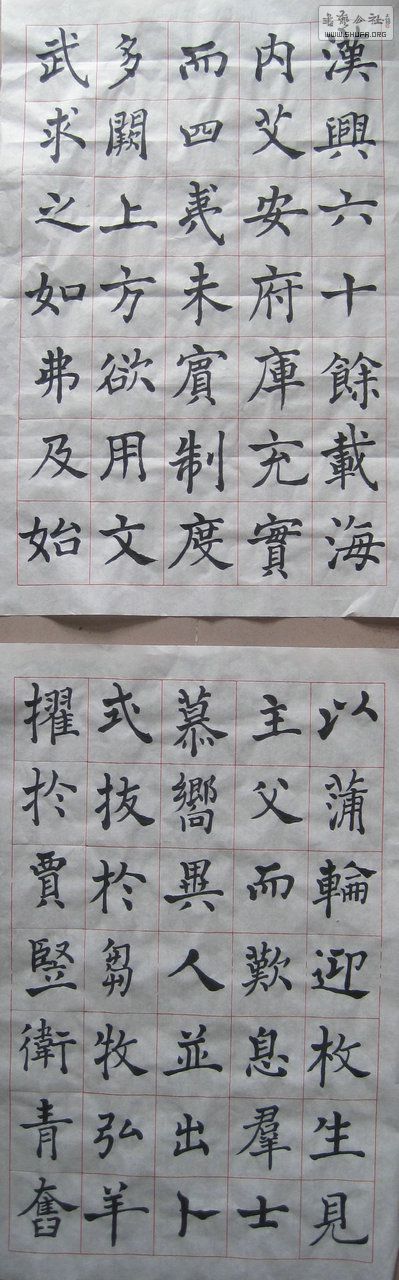 書藝公社
WWW.SHUFA.ORG
漢興六十餘載海
内艾安府庫充實
而四夷未賓制度
多闕上方欲用文
武求之如弗及始
以蒲輪迎枚生見
主父而歎息羣士
慕嚮異人並出卜
式拔於芻牧弘羊
擢於賈豎衛青奮